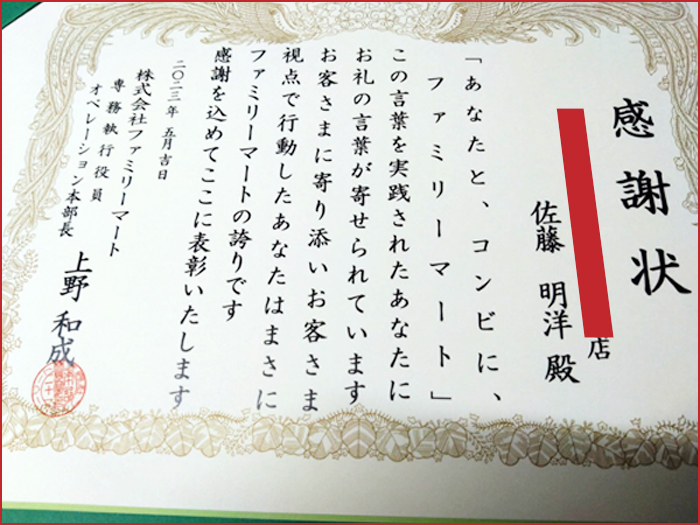 感謝状
店
佐藤 明洋 殿
「あなたと、コンビに、
ファミリーマート」
この言葉を実践されたあなたに
お礼の言葉が寄せられています
お客さまに寄り添いお客さま
視点で行動したあなたはまさに
ファミリーマートの誇りです
感謝を込めてここに表彰いたします
二〇二三年 五月吉日
株式会社ファミリーマート
専務執行役員
オペレーション本部長
上野 和成